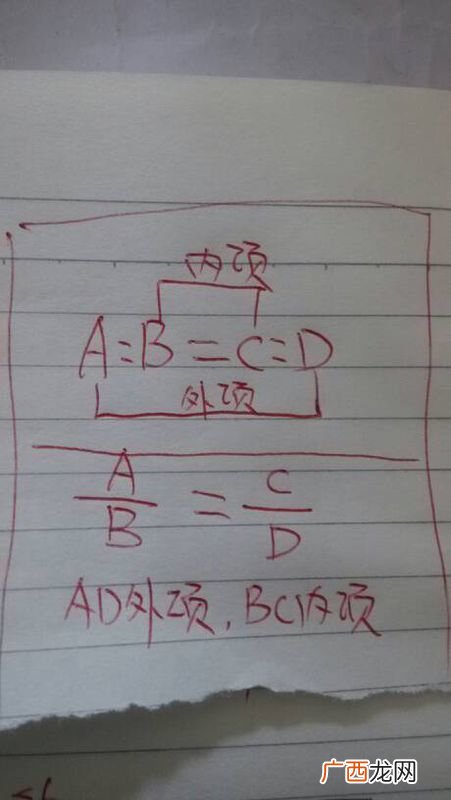 内项
A:B=C:D
外项
A/B = C/D
AD外项,BC内项
广西龙网